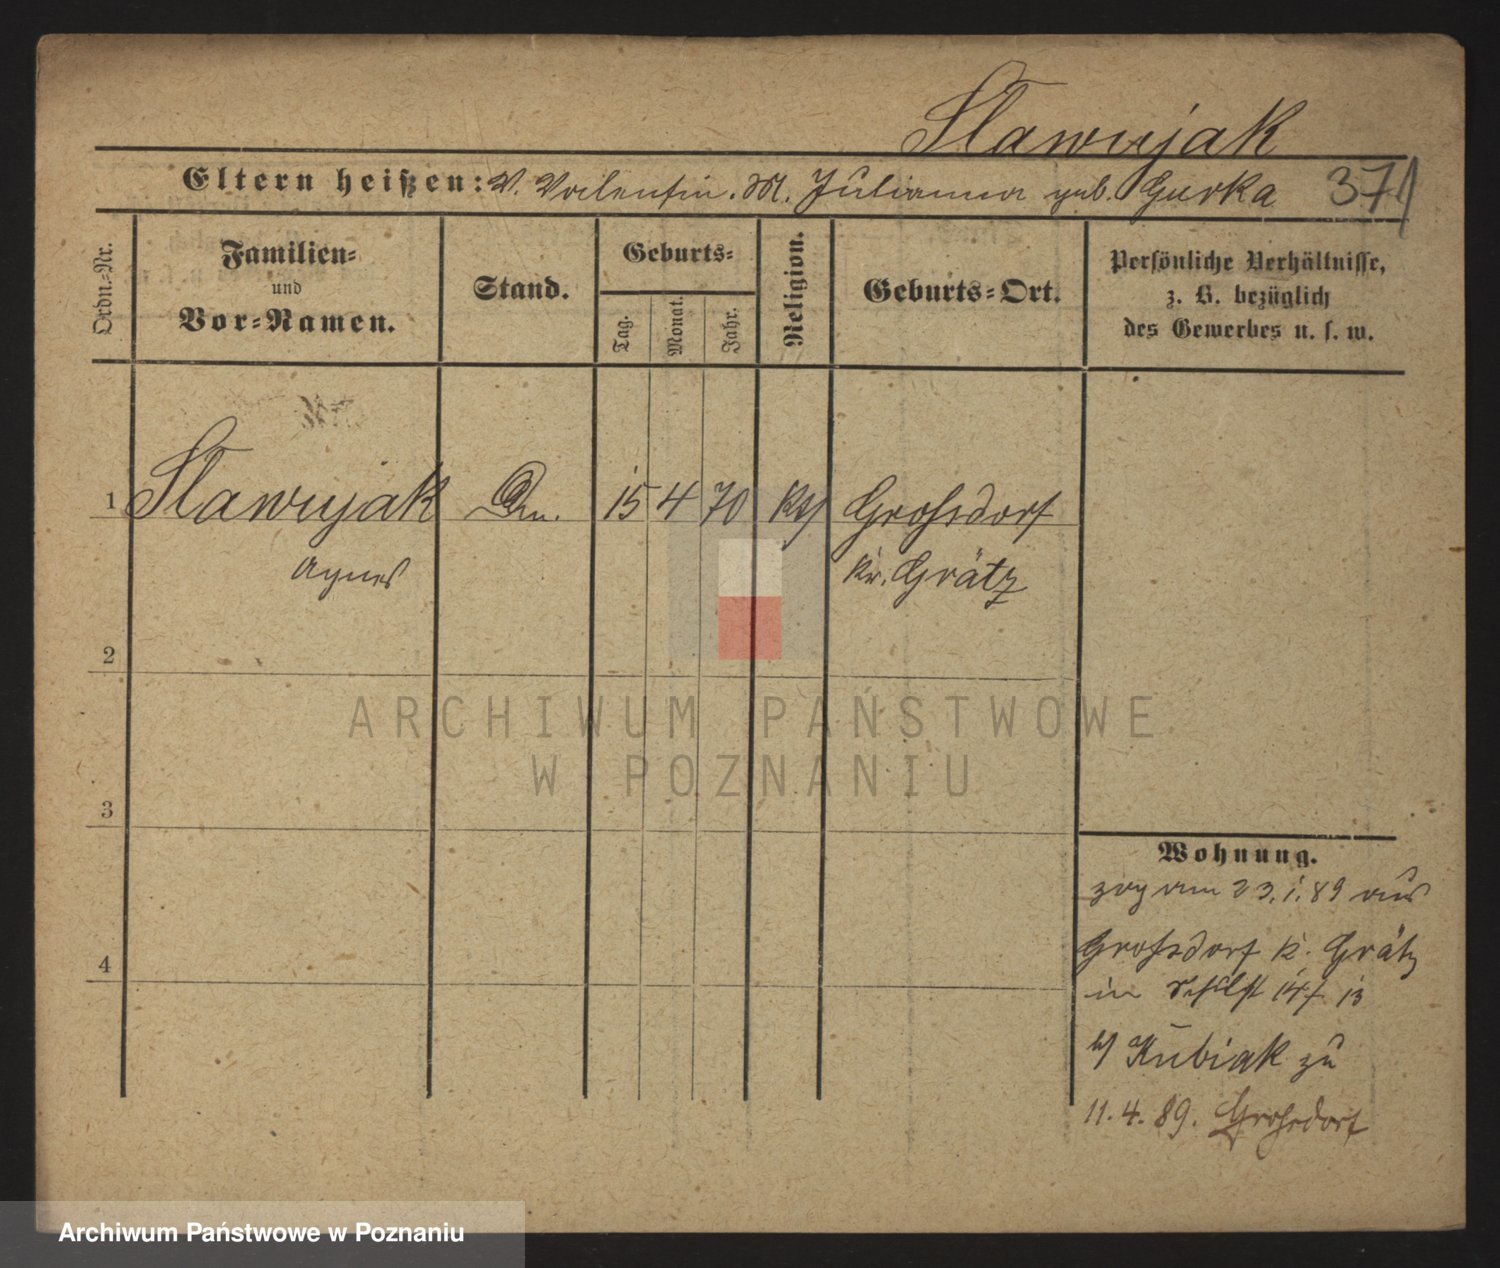 Slawujak
Eltern heißen: V. Valentin. M. Julianna geb. Gurka 371
Ordn.-Nr.
Familien-
und
Vor-Namen.
Stand.
Geburts-
Tag.
Monat.
Jahr.
Religion.
Geburts-Ort.
Persönliche Verhältnisse,
z. B. bezüglich
des Gewerbes u. s. w.
1 Slawujak 15 4 70 kth Grossdorf
Agnes Kr. Grätz
2
3
4
Wohnung.
zog am 23.1.89 aus
Grossdorf K. Grätz
in 13
b/ Kubiak zu
11.4.89. Grossdorf
ARCHIWUM PAŃSTWOWE
W POZNANIU
Archiwum Państwowe w Poznaniu